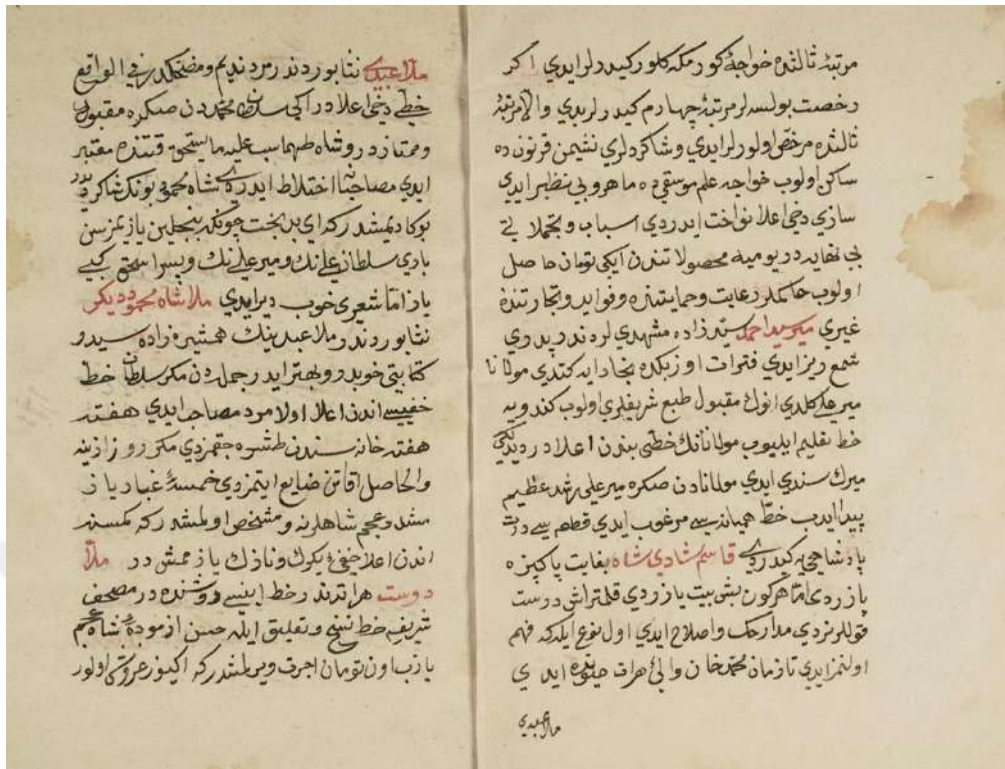 مرتبۀ ثالثده خواجۀ کورمکه کلور کیدرلر ایدی اکر
رخصت بولسه لر مرتبۀ چهارم کیدرلریدی والا مرتبۀ
ثالثده مرخص اولورلر ایدی وشاکردلری نشیمن قرنون ده
ساکن اولوب خواجه علم موسقی ده ماهر وبی نظیر ایدی
سازی دخی اعلا نواخت ایدردی اسباب وتجملاتی
بی نهایه در یومیه محصولاتندن ایکی تومان حاصل
اولوب حاکملر رعایت وحمایتنده وفواید وتجارتنده
غیری میر سید احمد سید زاده مشهدی لردندر پدری
شمع ریز ایدی فترات اوزبکده بخارایه کتدی مولانا
میر علی کلدی انوك مقبول طبع شریفلری اولوب کندویه
خط تعلیم ایلیوب مولانانك خطی بندن اعلادر دیدیکی
میرك سندی ایدی مولانادن صکره میر علی رشد عظیم
پیدا ایدب خط همیانه سی مرغوب ایدی قطعه سی درت
پادشاهی یه کیدردی قاسم شادی شاه بغایت پاکیزه
یازردی اما هر کون بش بیت یازردی قلمتراش درست
قوللرنزدی مدارحك واصلاح ایدی اول نوع ایلدکه فهم
اولنمز ایدی تا زمان محمد خان والئ هرات حیوتده ایدی
ملا عبدی
ملا عبدی نشابوردندر مرد ندیم ومضحکدر فی الواقع
خطی دخی اعلادر اکی سلطان محمددن صکره مقبول
وممتازدر وشاه طهماسب علیه مایستحق قتنده معتبر
ایدی مصاحبانه اختلاط ایدردی شاه محمود بونك شاکردیدر
بوکا دیمشدر که ای بدبخت چونکه بنجلین یازیمزسن
باری سلطان علی نك ومیر علی نك ویسر اسحق کیبی
یاز اما شعری خوب دیر ایدی ملا شاه محمود دیکر
نشابوردندر وملا عبدینك همشیره زاده سیدر و
کتابتی خوبدر وبهتر ایدر جمله دن مکر سلطان خط
خفیسی اندن اعلا اولا مرد مصاحب ایدی هفته
هفته خانه سندن طشره چقمزدی مکر روز ازینه
والحاصل اوقاتن ضایع ایتمزدی خمسۀ غبار یاز
مشدر عجم شاهلرنه ومشخص اولمشدر که کمسنه
اندن اعلا خفی یکرك ونازك یازممش در ملا
دوست هراتدندر خط اینسی روشنده در مصحف
شریفه خط نسخ وتعلیق ایله حسن ازموده شاه عجم
یازب اون تومان اجرت ویرلمشدر که اکیوز عروش اولور